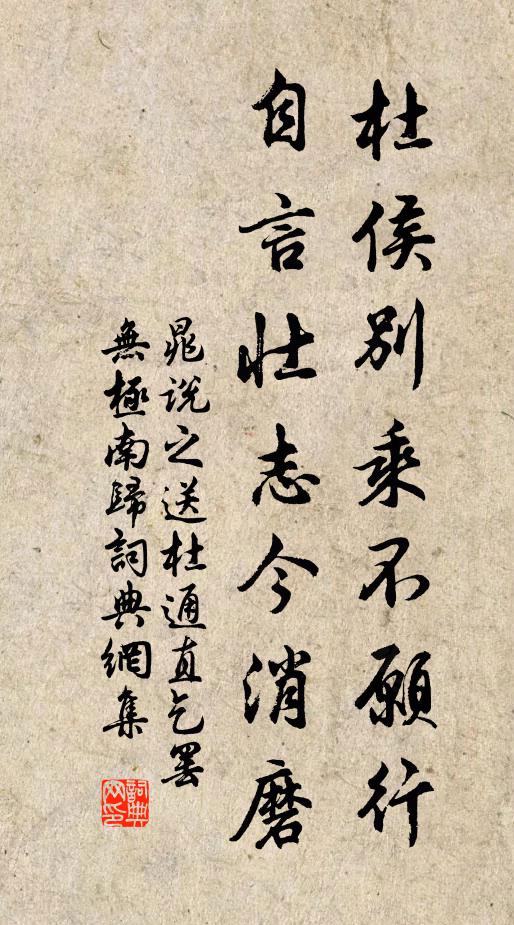 杜侯別乘不願行
自言壯志今消磨
晁說之送杜通直乞罷
無極南歸詞典網集
詞典網印